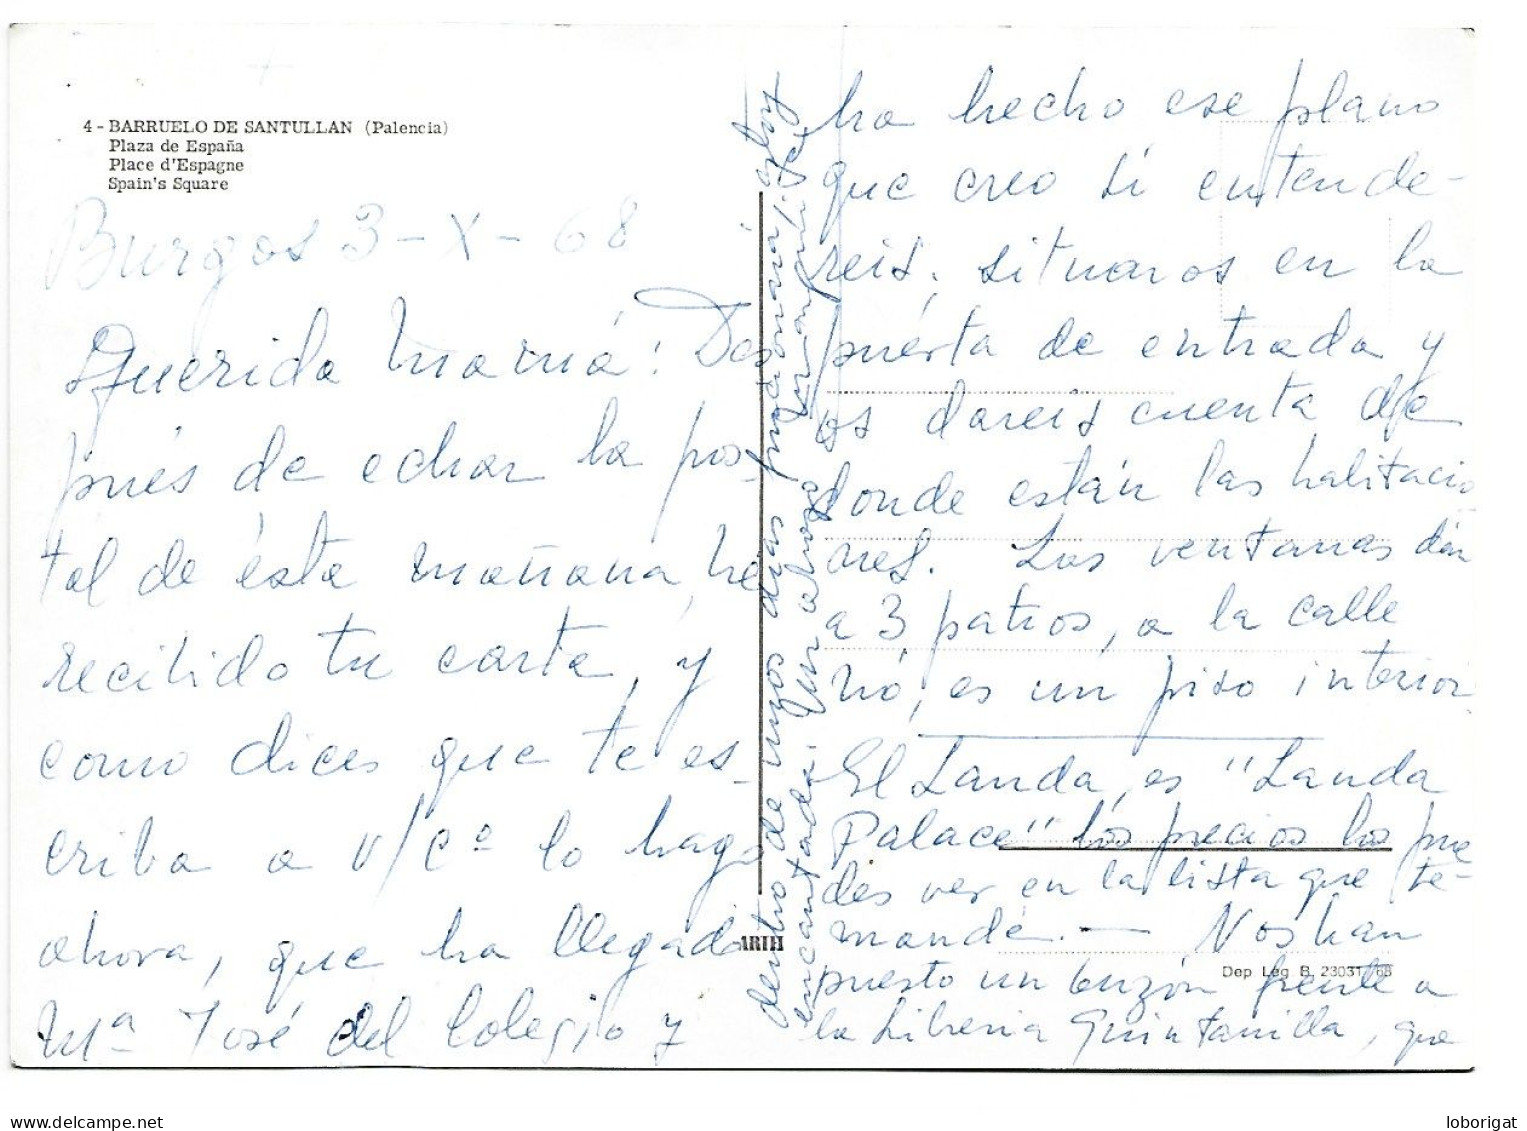 4 - BARRUELO DE SANTULLAN (Palencia)
Plaza de España
Place d'Espagne
Spain's Square
Burgos 3-X-68
Querida Mamá: Des
pués de echar la pos-
tal de ésta mañana, he
recibido tu carta, y
como dices que te es-
criba a v/cº lo hago
ahora, que ha llegado
Mª José del Colegio y
ha hecho ese plano
que creo si entende-
reis, situaros en la
puerta de entrada y
os dareis cuenta de
donde están las habitacio
nes. Las ventanas dán
a 3 patios, a la calle
nó, es un piso interior
El Landa, es "Landa
Palace" los precios los pue
des ver en la lista que te-
mandé. — Nos han
puesto un buzón frente a
la Libreria Quintanilla, que
dentro de unos dias funcionará, estoy
encantada. Un abrazo
ARTH
Dep. Leg. B. 23031-68
loborigat